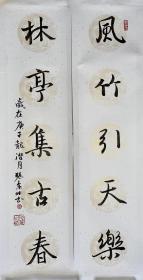 風竹引天樂
林亭集古春
歲在庚子龍潛月